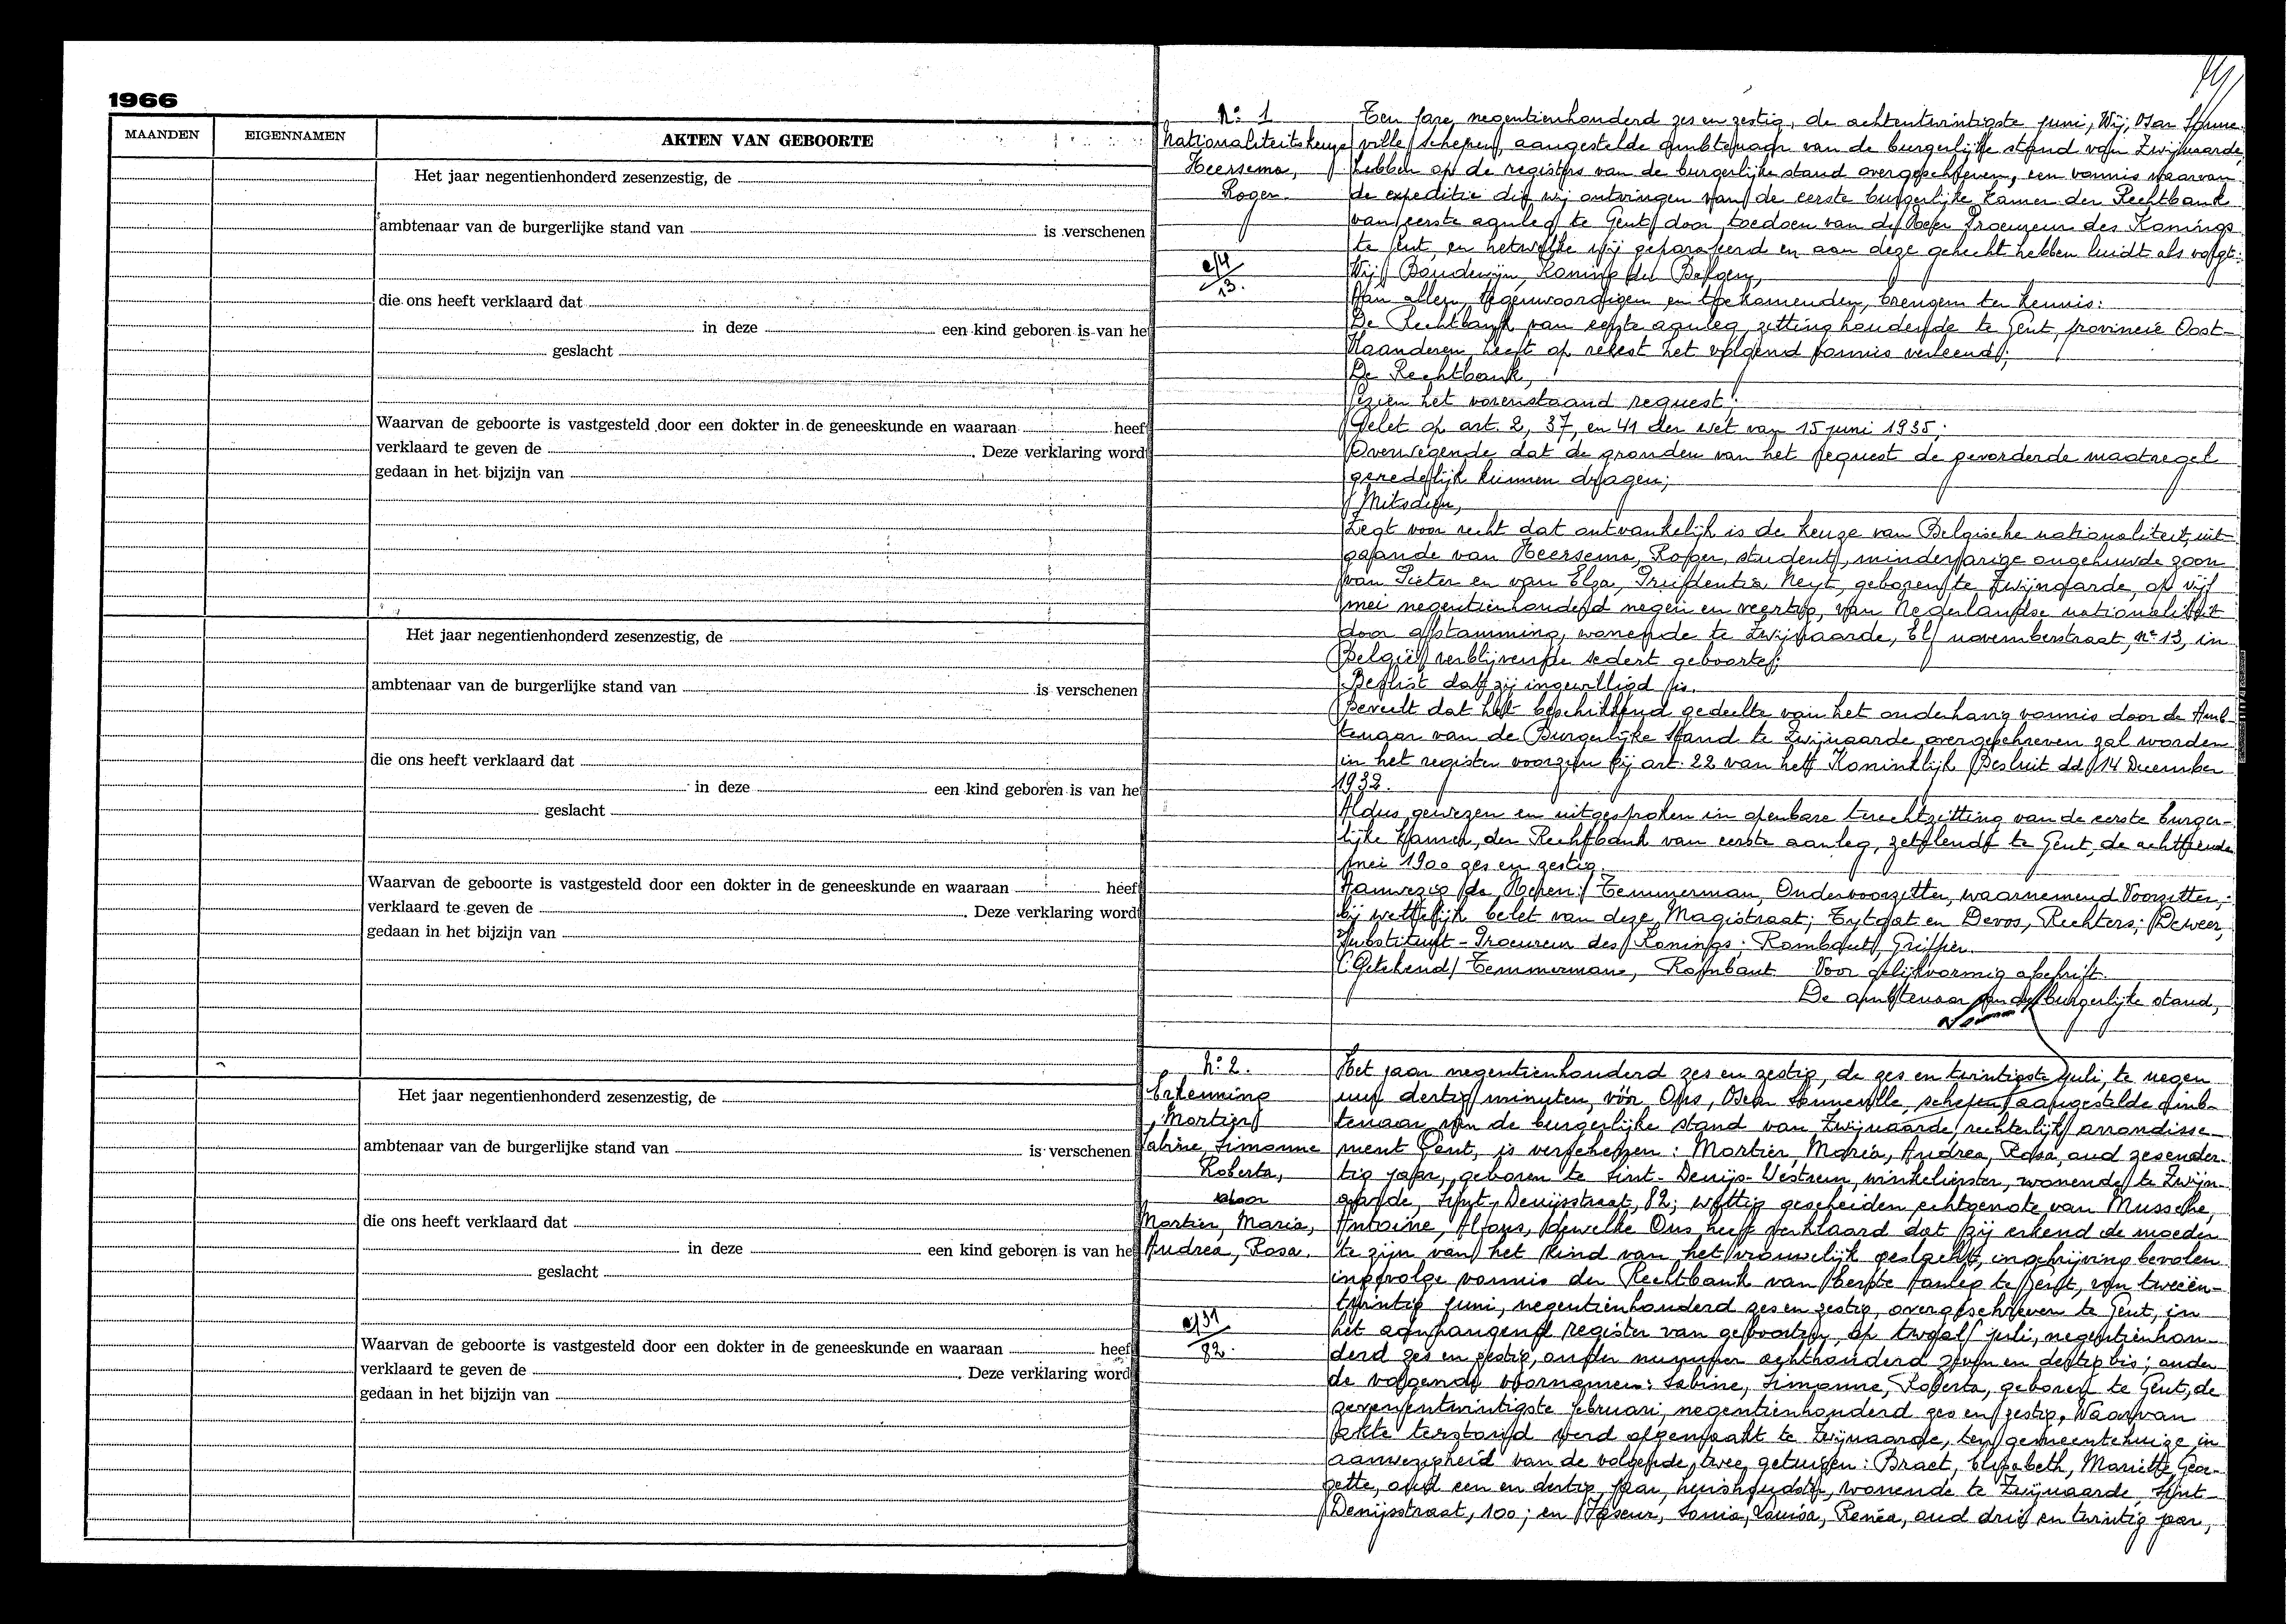 1966
MAANDEN EIGENNAMEN AKTEN VAN GEBOORTE
Het jaar negentienhonderd zesenzestig, de
ambtenaar van de burgerlijke stand van is verschenen
die ons heeft verklaard dat
in deze een kind geboren is van he
geslacht
Waarvan de geboorte is vastgesteld door een dokter in de geneeskunde en waaraan heef
verklaard te geven de . Deze verklaring word
gedaan in het bijzijn van
Het jaar negentienhonderd zesenzestig, de
ambtenaar van de burgerlijke stand van is verschenen
die ons heeft verklaard dat
in deze een kind geboren is van he
geslacht
Waarvan de geboorte is vastgesteld door een dokter in de geneeskunde en waaraan heef
verklaard te geven de . Deze verklaring word
gedaan in het bijzijn van
Het jaar negentienhonderd zesenzestig, de
ambtenaar van de burgerlijke stand van is verschenen
die ons heeft verklaard dat
in deze een kind geboren is van he
geslacht
Waarvan de geboorte is vastgesteld door een dokter in de geneeskunde en waaraan heef
verklaard te geven de . Deze verklaring word
gedaan in het bijzijn van
N° 1
Nationaliteitskeuze
Heersema,
Roger.
13.
Ten jare negentienhonderd zes en zestig, de achtentwintigste juni, Wij,
ville schepen, aangestelde ambtenaar van de burgerlijke stand van Zwijnaarde,
hebben op de registers van de burgerlijke stand overgeschreven, een vonnis waarvan
de expeditie die wij ontvingen van de eerste burgerlijke Kamer der Rechtbank
van eerste aanleg te Gent door toedoen van de Heer Procureur des Konings
te Gent, en hetwelke wij geparafeerd en aan deze gehecht hebben luidt als volgt:
Wij Boudewijn, Koning der Belgen,
Aan allen, tegenwoordigen en toekomenden, brengen ter kennis:
De Rechtbank van eerste aanleg, zitting houdende te Gent, provincie Oost-
Vlaanderen heeft op rekest het volgend vonnis verleend;
De Rechtbank,
Gezien het vorenstaand request!
Gelet op art. 2, 37, en 41 der wet van 15 juni 1935;
Overwegende dat de gronden van het request de gevorderde maatregel
genedelijk kunnen dragen;
Mitsdien,
Zegt voor recht dat ontvankelijk is de keuze van Belgische nationaliteit, uit
gaande van Heersema, Roger, student, minderjarige ongehuwde zoon
van Pieter en van Elza, Prudentia Neyt, geboren te Zwijnaarde, op vijf
mei negentienhonderd negen en veertig, van Nederlandse nationaliteit
door afstamming, wonende te Zwijnaarde, El novemberstraat, n° 13, in
België verblijvende sedert geboorte;
Beslist dat zij ingewilligd is.
Beveelt dat het beschikkend gedeelte van het onderhavig vonnis door de Amb-
tenaar van de Burgerlijke Stand te Zwijnaarde overgeschreven zal worden
in het register voorzien bij art. 22 van het Koninklijk Besluit dd 14 December
1932.
Aldus gewezen en uitgesproken in openbare terechtzitting van de eerste burger-
lijke Kamer, der Rechtbank van eerste aanleg, zetelend te Gent, de achttiende
mei 1900 zes en zestig.
Aanwezig de Heren: Temmerman, Ondervoorzitter, waarnemend Voorzitter,
bij wettelijk belet van deze Magistraat; Tytgat en Devos, Rechters; Deweer,
Substituut-Procureur des Konings: Rombaut, Griffier.
(Getekend) Temmerman, Rombaut Voor gelijkvormig afschrift.
De ambtenaar van de burgerlijke stand,
N° 2.
Erkenning
Mortier
Sabine, Simonne
Roberta,
door
Mortier, Maria,
Andrea, Rosa.
82.
Het jaar negentienhonderd zes en zestig, de zes en twintigste juli, te negen
uur dertig minuten, vóór Ons, schepen, aangestelde amb-
tenaar van de burgerlijke stand van Zwijnaarde, rechterlijk arrondisse-
ment Gent, is verschenen: Mortier, Maria, Andrea, Rosa, oud zesender-
tig jaar, geboren te Sint-Denijs-Westrem, winkelierster, wonende te Zwijn-
aarde, Sint-Denijsstraat, 82; wettig gescheiden echtgenote van Mussche,
Antoine, Alfons, dewelke Ons heeft verklaard dat zij erkend de moeder
te zijn van het kind van het vrouwelijk geslacht, inschrijving bevolen
ingevolge vonnis der Rechtbank van eerste Aanleg te Gent, van tweeën-
twintig juni, negentienhonderd zes en zestig, overgeschreven te Gent, in
het aanhangend register van geboorten, op twaalf juli, negentienhon-
derd zes en zestig, onder nummer achthonderd zeven en dertig bis; onder
de volgende voornamen: Sabine, Simonne, Roberta, geboren te Gent, de
zevenentwintigste februari, negentienhonderd zes en zestig. Waarvan
akte terstond werd opgemaakt te Zwijnaarde, ten gemeentehuize in
aanwezigheid van de volgende twee getuigen: Braet, Elisabeth, Mariette, Geor-
gette, oud een en dertig jaar, huishoudster, wonende te Zwijnaarde, Sint-
Denijsstraat, 100; en Sonia, Louisa, Renéa, oud drie en twintig jaar,